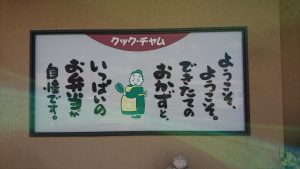 クック・チャム
ようこそ、
ようこそ。
できたての
おかずと、
いっぱいの
お弁当が
自慢です。